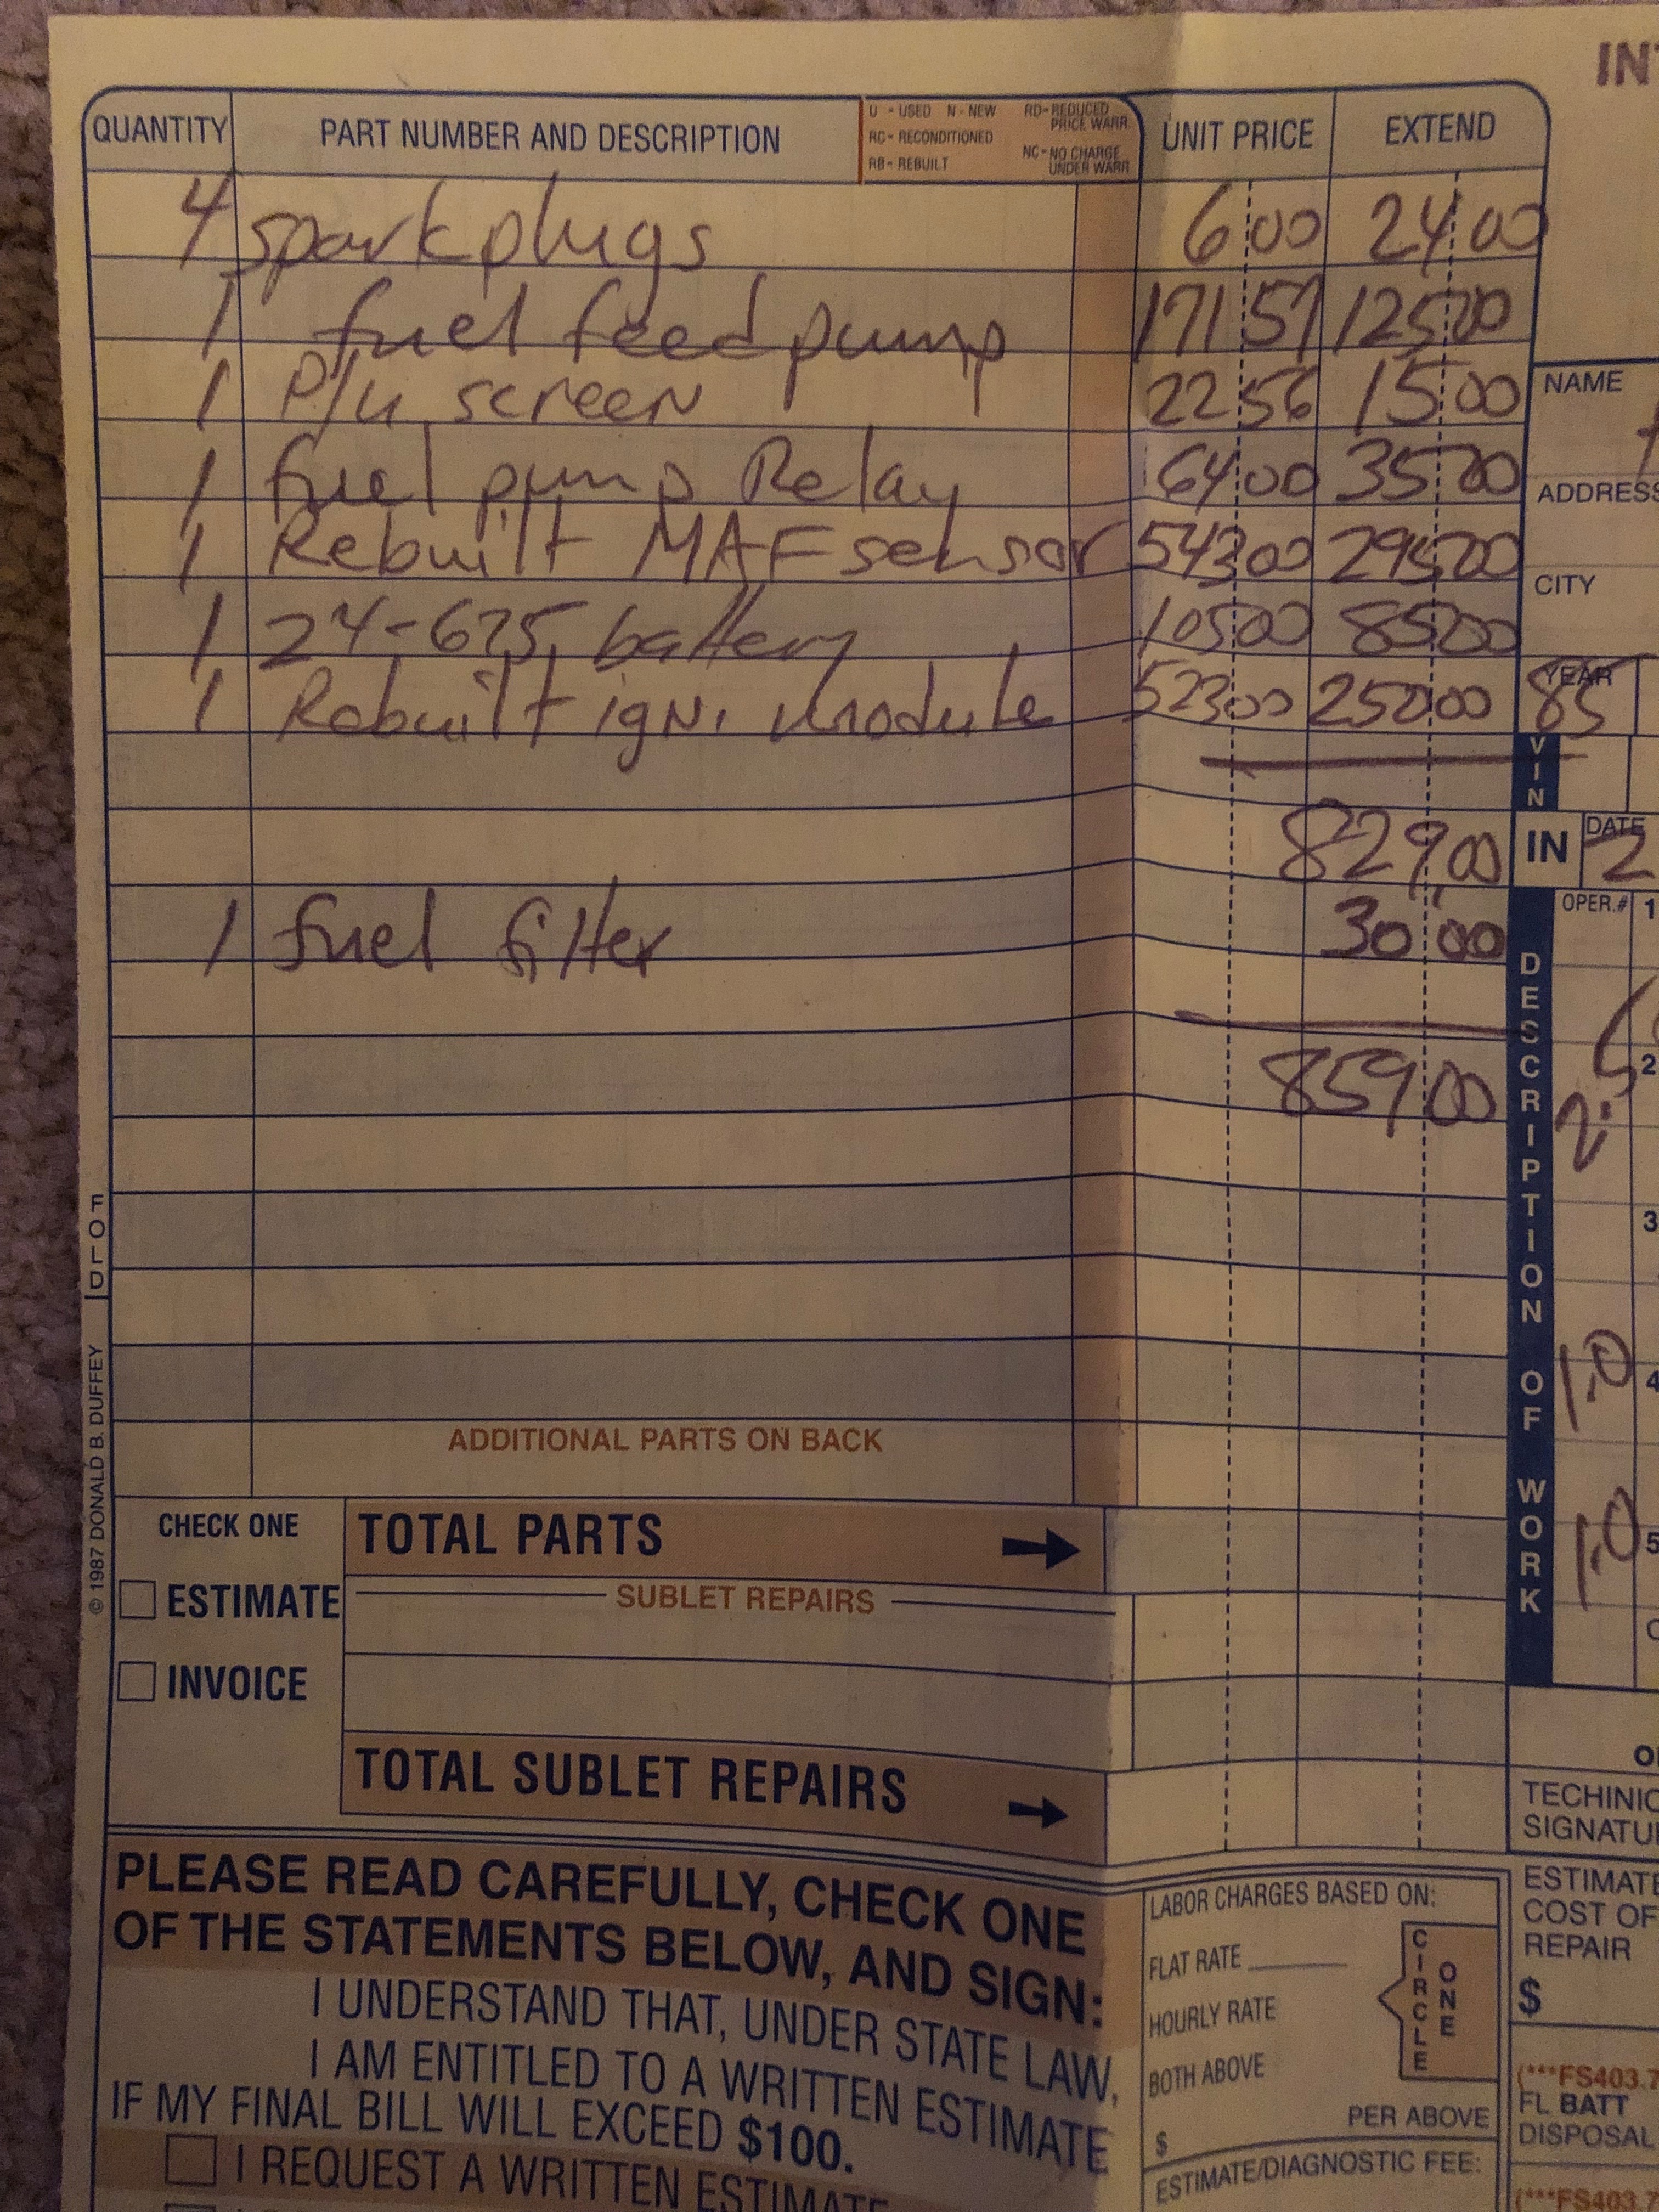 INT
QUANTITY PART NUMBER AND DESCRIPTION U - USED N - NEW RD-REDUCED PRICE WARR. UNIT PRICE EXTEND
RC - RECONDITIONED NC-NO CHARGE UNDER WARR.
RB - REBUILT
4 sparkplugs 6 00 24 00
1 fuel feed pump 171 57 125 00
1 P/u screen 22 56 15 00
1 fuel pump Relay 64 00 35 00
1 Rebuilt MAF sensor 543 00 295 00
1 24-675 battery 105 00 85 00
1 Rebuilt ign. module 523 00 250 00
829,00
1 fuel filter 30 00
859 00
ADDITIONAL PARTS ON BACK
CHECK ONE
ESTIMATE
INVOICE
TOTAL PARTS
SUBLET REPAIRS
TOTAL SUBLET REPAIRS
PLEASE READ CAREFULLY, CHECK ONE
OF THE STATEMENTS BELOW, AND SIGN:
I UNDERSTAND THAT, UNDER STATE LAW,
I AM ENTITLED TO A WRITTEN ESTIMATE
IF MY FINAL BILL WILL EXCEED $100.
I REQUEST A WRITTEN ESTIMATE
LABOR CHARGES BASED ON:
FLAT RATE
HOURLY RATE
BOTH ABOVE
PER ABOVE
$
CIRCLE ONE
ESTIMATE/DIAGNOSTIC FEE:
NAME
ADDRESS
CITY
YEAR
85
VIN
IN DATE
2
OPER.# 1
2
3
1.0 4
1.0 5
DESCRIPTION OF WORK
TECHINIC
SIGNATU
ESTIMATE
COST OF
REPAIR
$
(***FS403.7
FL BATT
DISPOSAL
(***FS403.7
FOLD
© 1987 DONALD B. DUFFEY